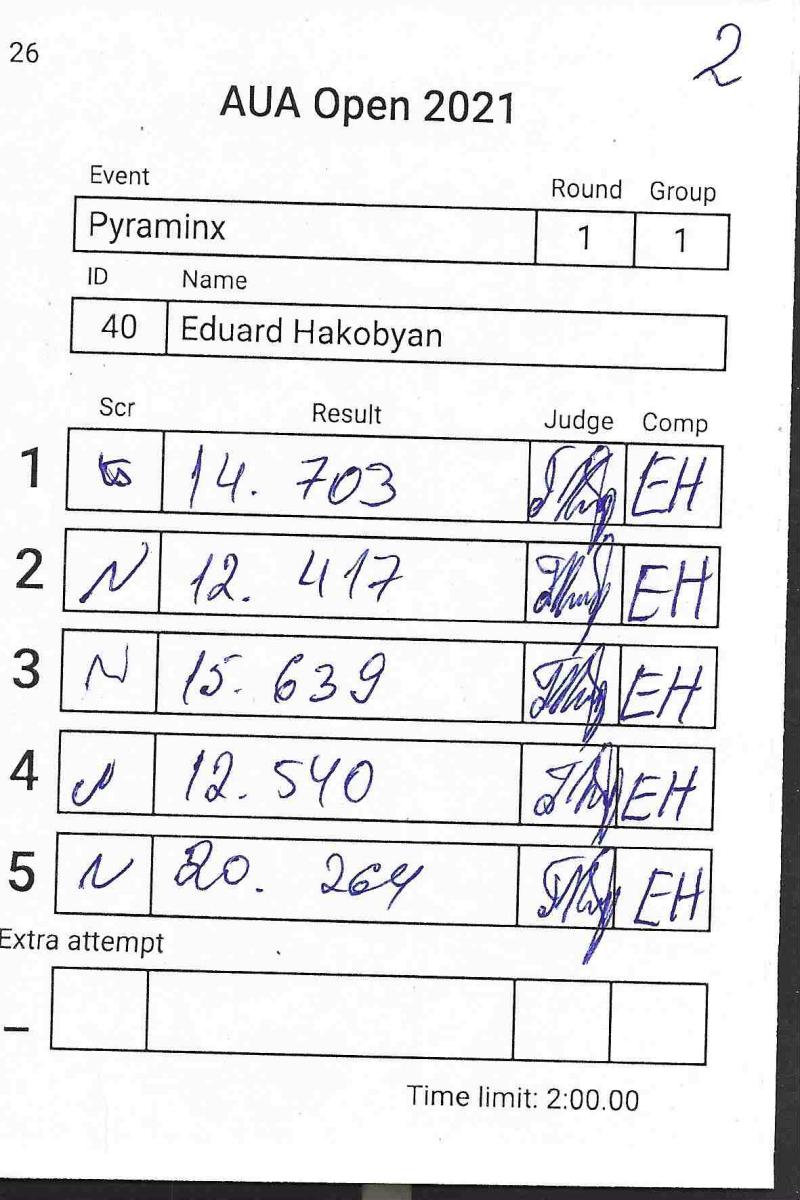 26
2
AUA Open 2021
Event Round Group
Pyraminx 1 1
ID Name
40 Eduard Hakobyan
Scr Result Judge Comp
1 14. 703 EH
2 N 12. 417 EH
3 N 15. 639 EH
4 N 12. 540 EH
5 N 20. 264 EH
Extra attempt
_
Time limit: 2:00.00